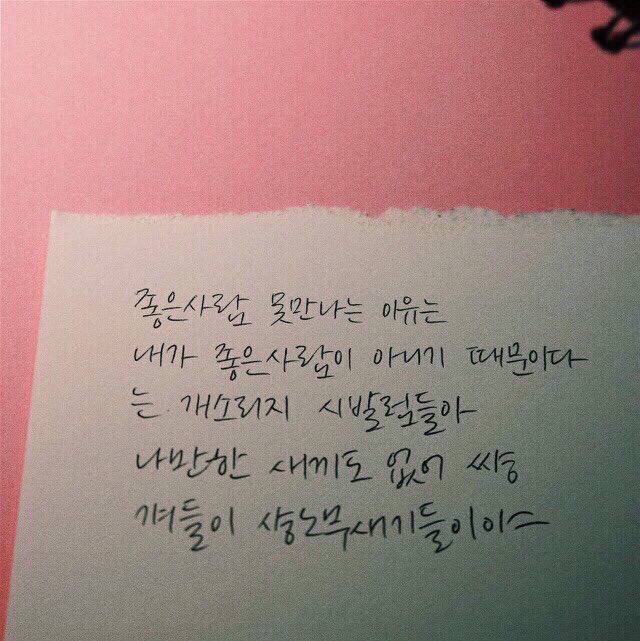 좋은사람 못만나는 이유는
내가 좋은사람이 아니기 때문이다
는 개소리지 시발럼들아
나만한 새끼도 없어 쌰숑
겨들이 상노무새기들이이스